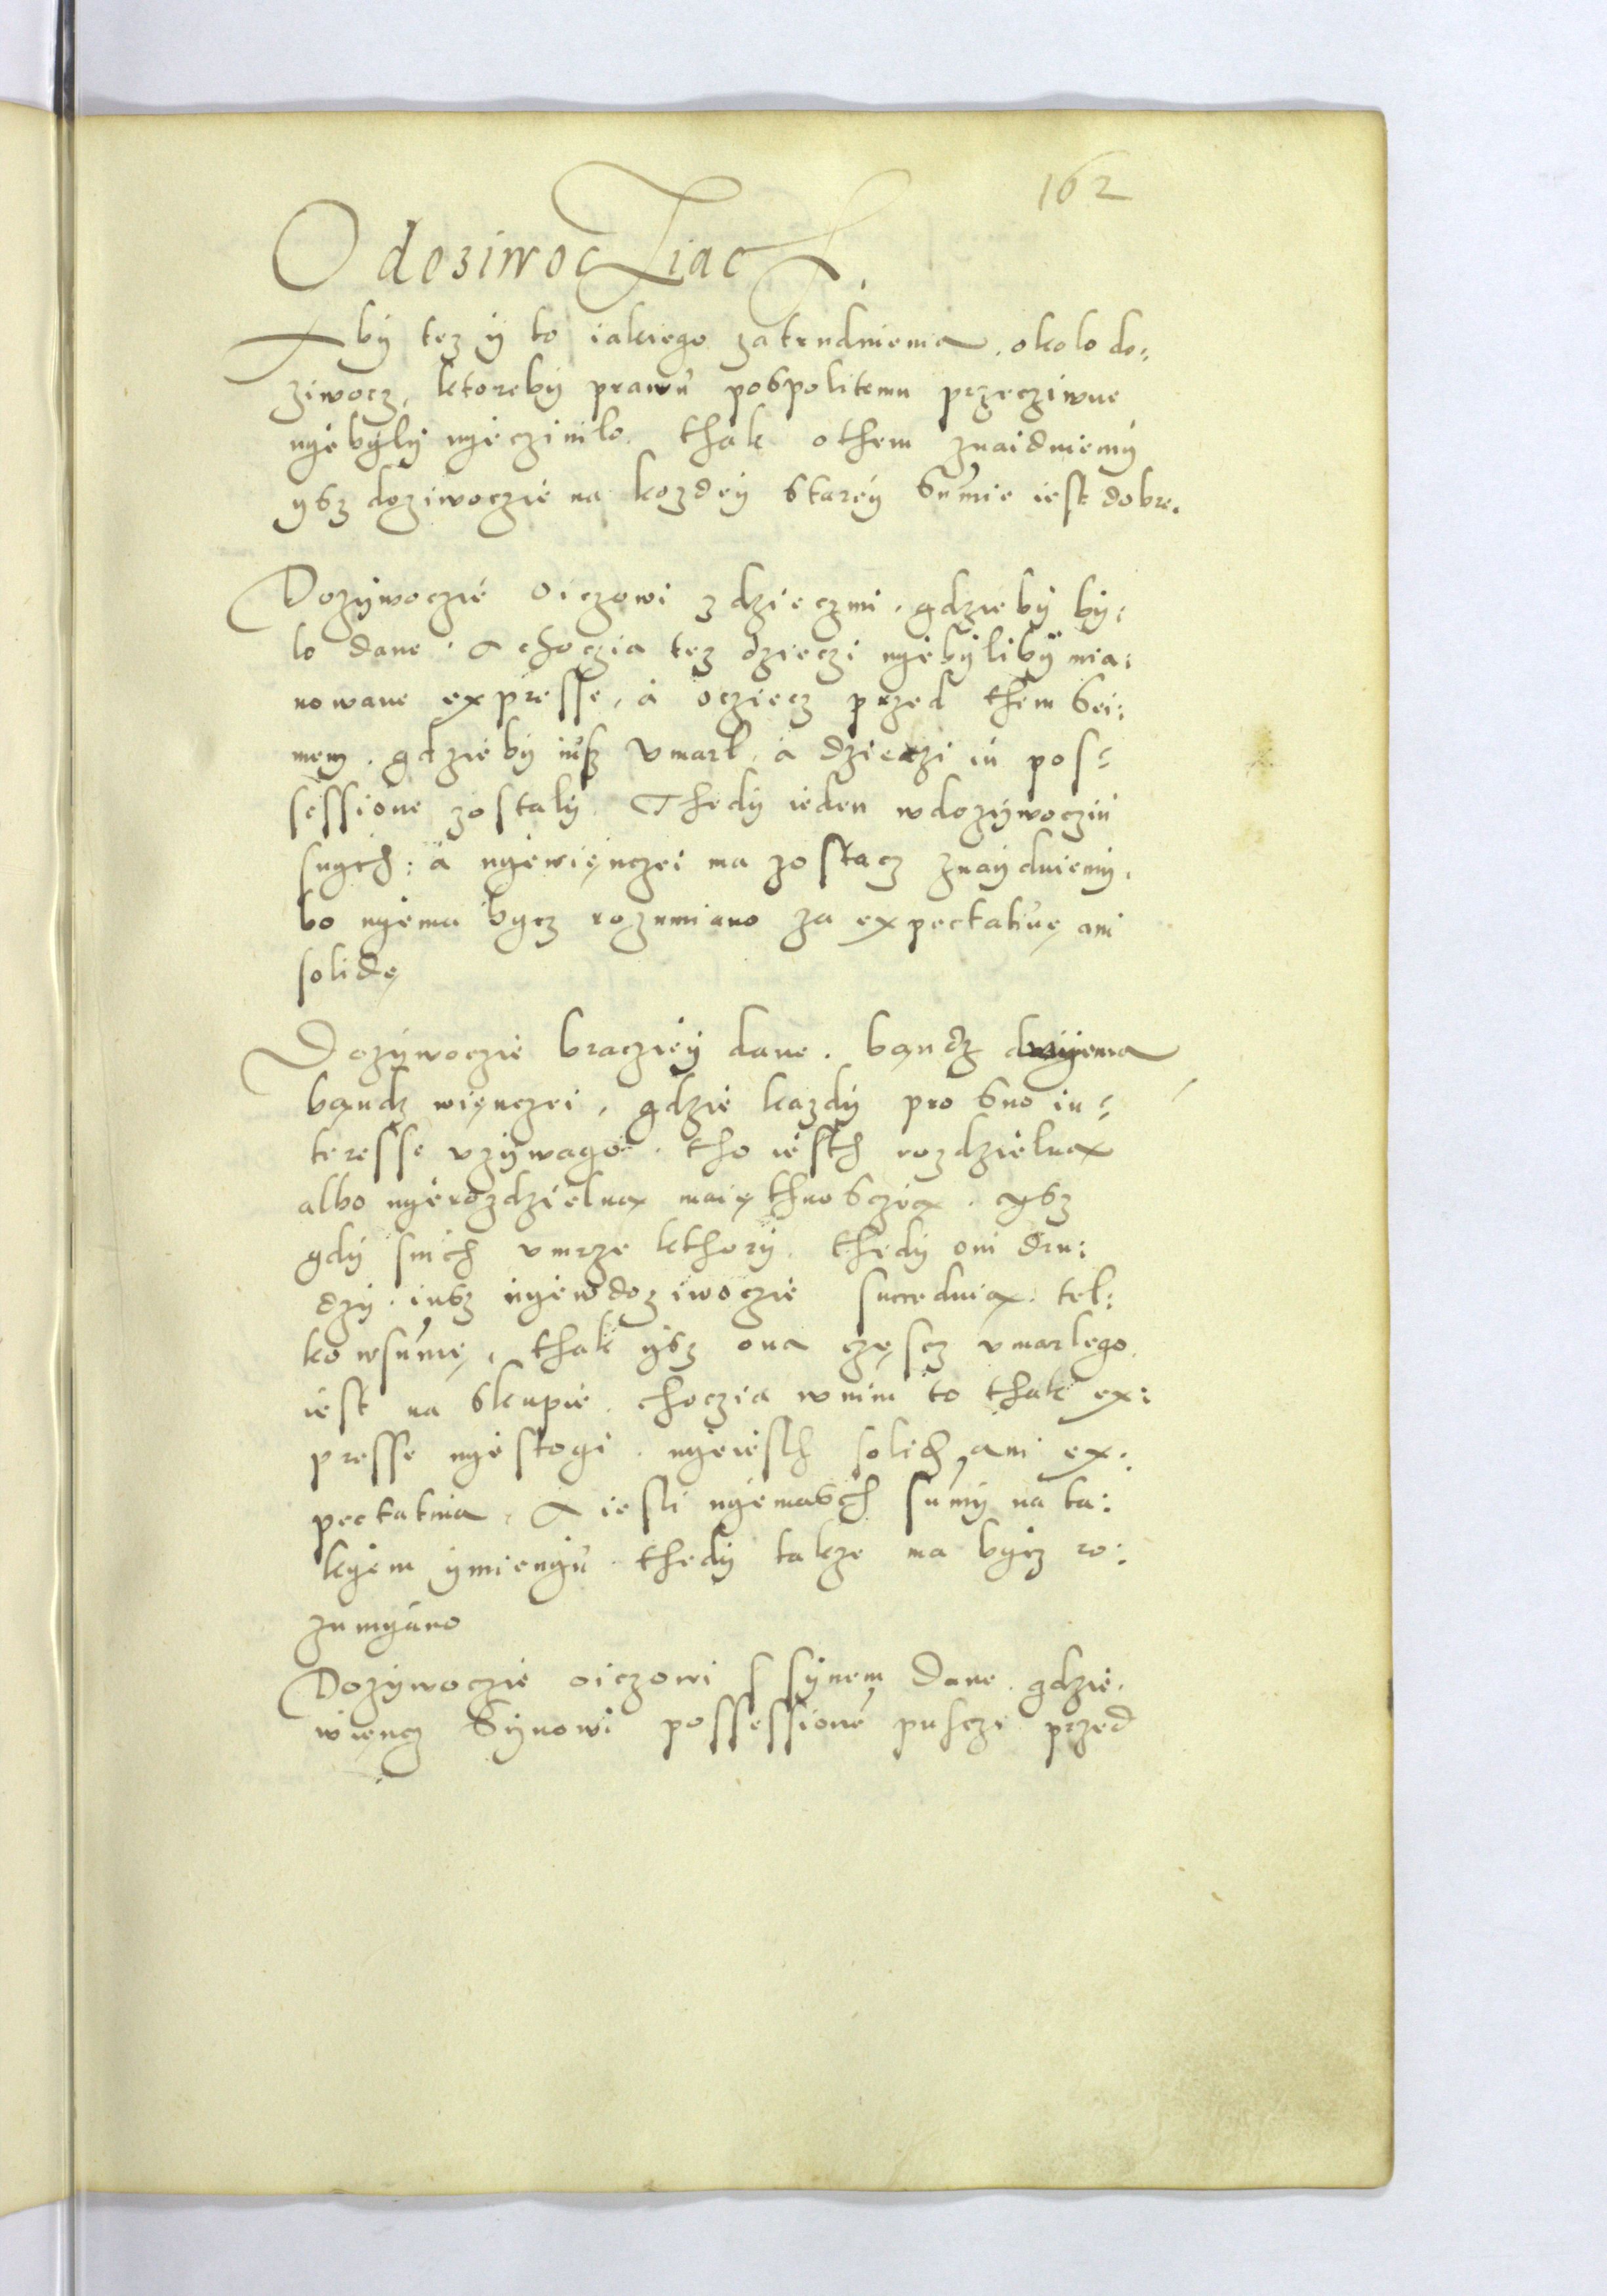 162
O dosiwocziach.
Aby tez ÿ to iakiego zatrudnienia. okolo do:
ziwocz, ktorebÿ prawu pospolitemu przecziwne
nÿebÿlÿ nÿeczinilo. thak othem znaidniemÿ
ÿsz doziwoczie na kozdeÿ stareÿ summie iest dobre.
Dozÿwoczie oiczowi z dzieczmi. gdziebÿ bÿ:
lo dane. A choczia tez dzieczi nÿebÿlibÿ mia:
nowane expresse, a ocziecz przed them sei:
mem. gdziebÿ iusz vmarl, a dzieczi in pos:
sessione zostalÿ. Thedÿ ieden w dozÿwocziu
snÿch: a nÿewięnczei ma zostacz znaÿdniemÿ,
bo nÿema bÿcz rozumiano za expectatiuę ani
solidę
Dozÿwoczie braczieÿ dane. bąndz dwÿema
bąndz więnczei, gdzie kazdÿ pro suo in:
teresse vzÿwago. tho iesth rozdzielną
albo nÿerozdzielną maięthnosczią. ÿsz
gdÿ snich vmrze kthorÿ. thedÿ oni dru:
dzÿ. iusz nÿewdoziwoczie succeduią. tel:
ko wsumę, thak ÿsz ona częscz vmarlego
iest na skupie. choczia wnim to thak ex:
presse nÿestogi. nÿeiesth solid, ani ex:
pectatiua. A iesli nÿemasch summÿ na ta:
kÿem ÿmienÿu. thedÿ takze ma bÿcz ro:
zumÿano
Dozÿwoczie oiczowi s sÿnem dane. gdzie.
więncz sÿnowi possessione pusczi przed